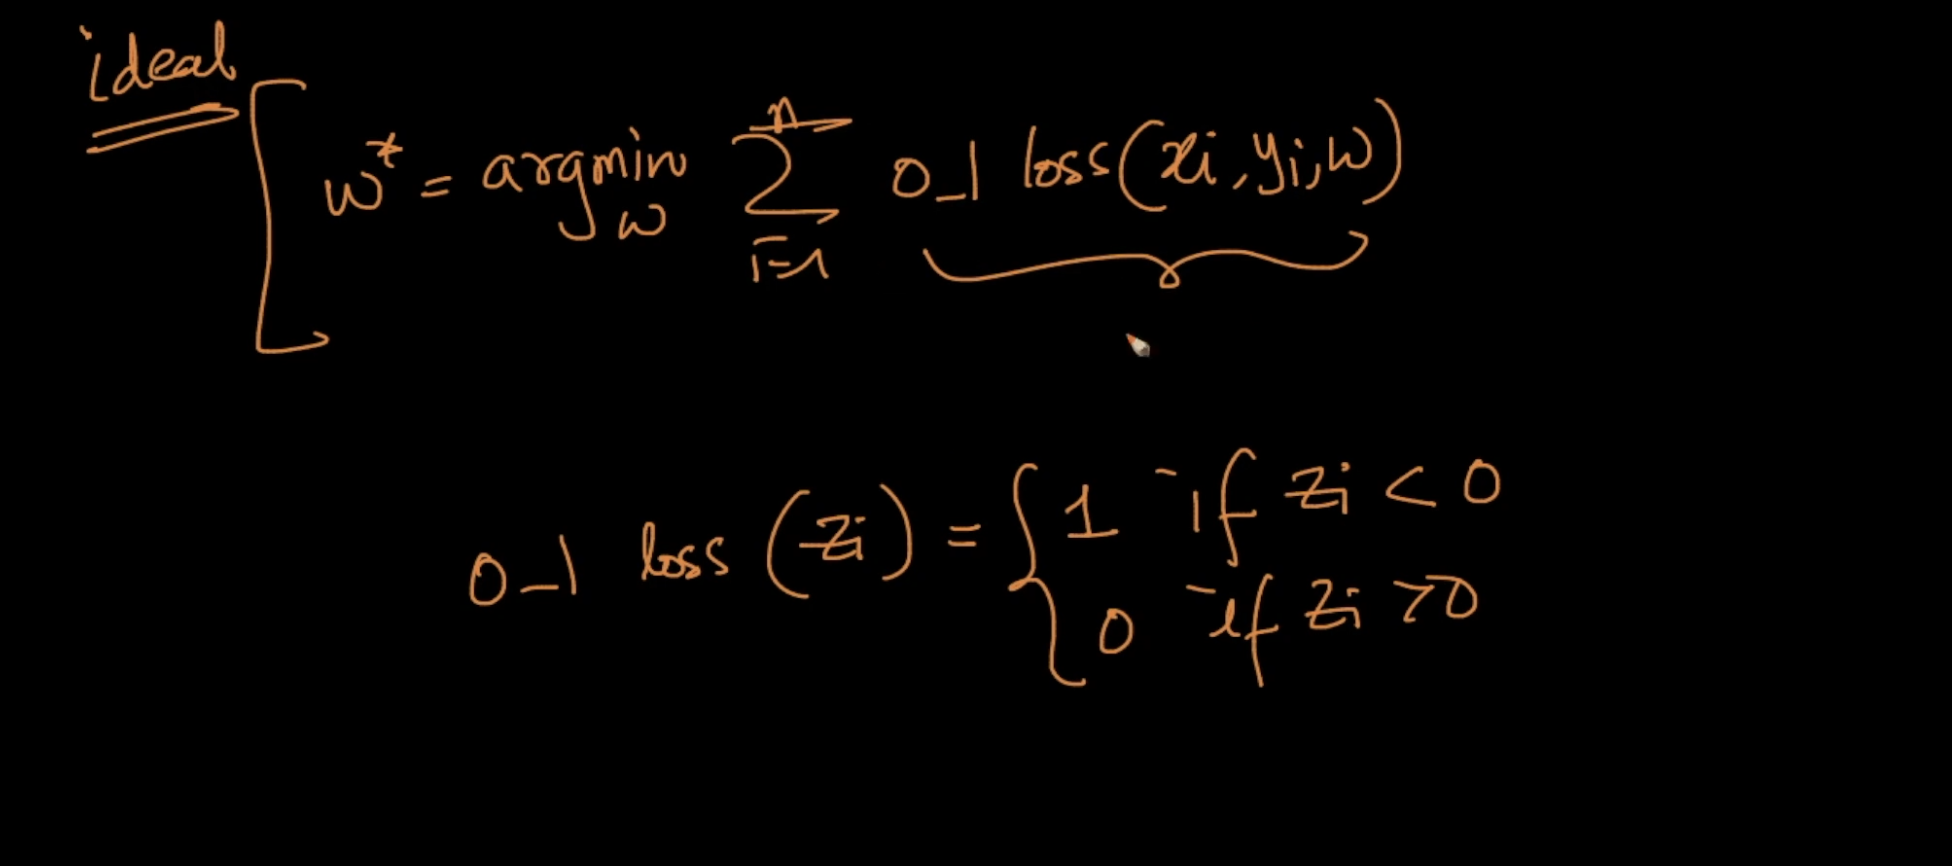 ideal
w* = argmin_w Σ_{i=1}^{n} 0_1 loss(xi, yi, w)
0_1 loss (zi) = { 1 if zi < 0
0 if zi > 0